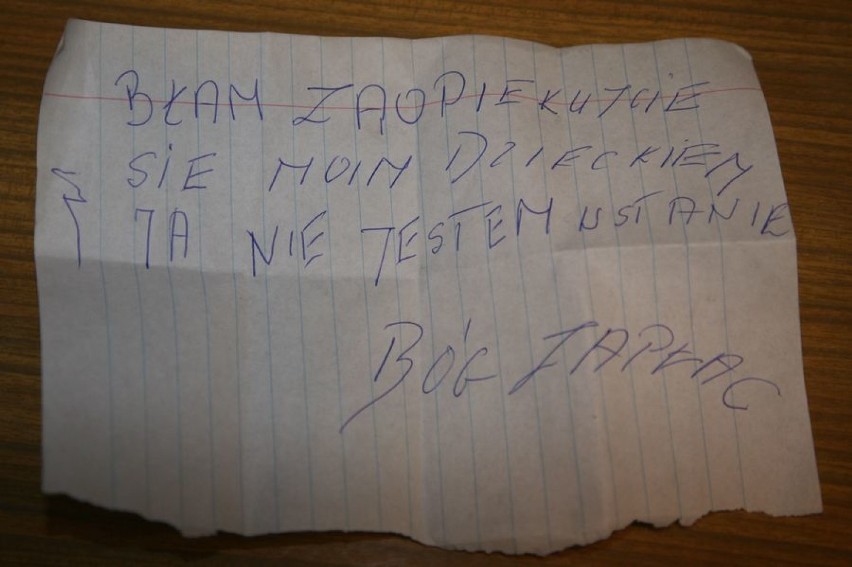 BŁAM ZAOPIEKUJCIE
SIE MOIM DZIECKIEM
JA NIE JESTEM WSTANIE
BÓG ZAPŁAC